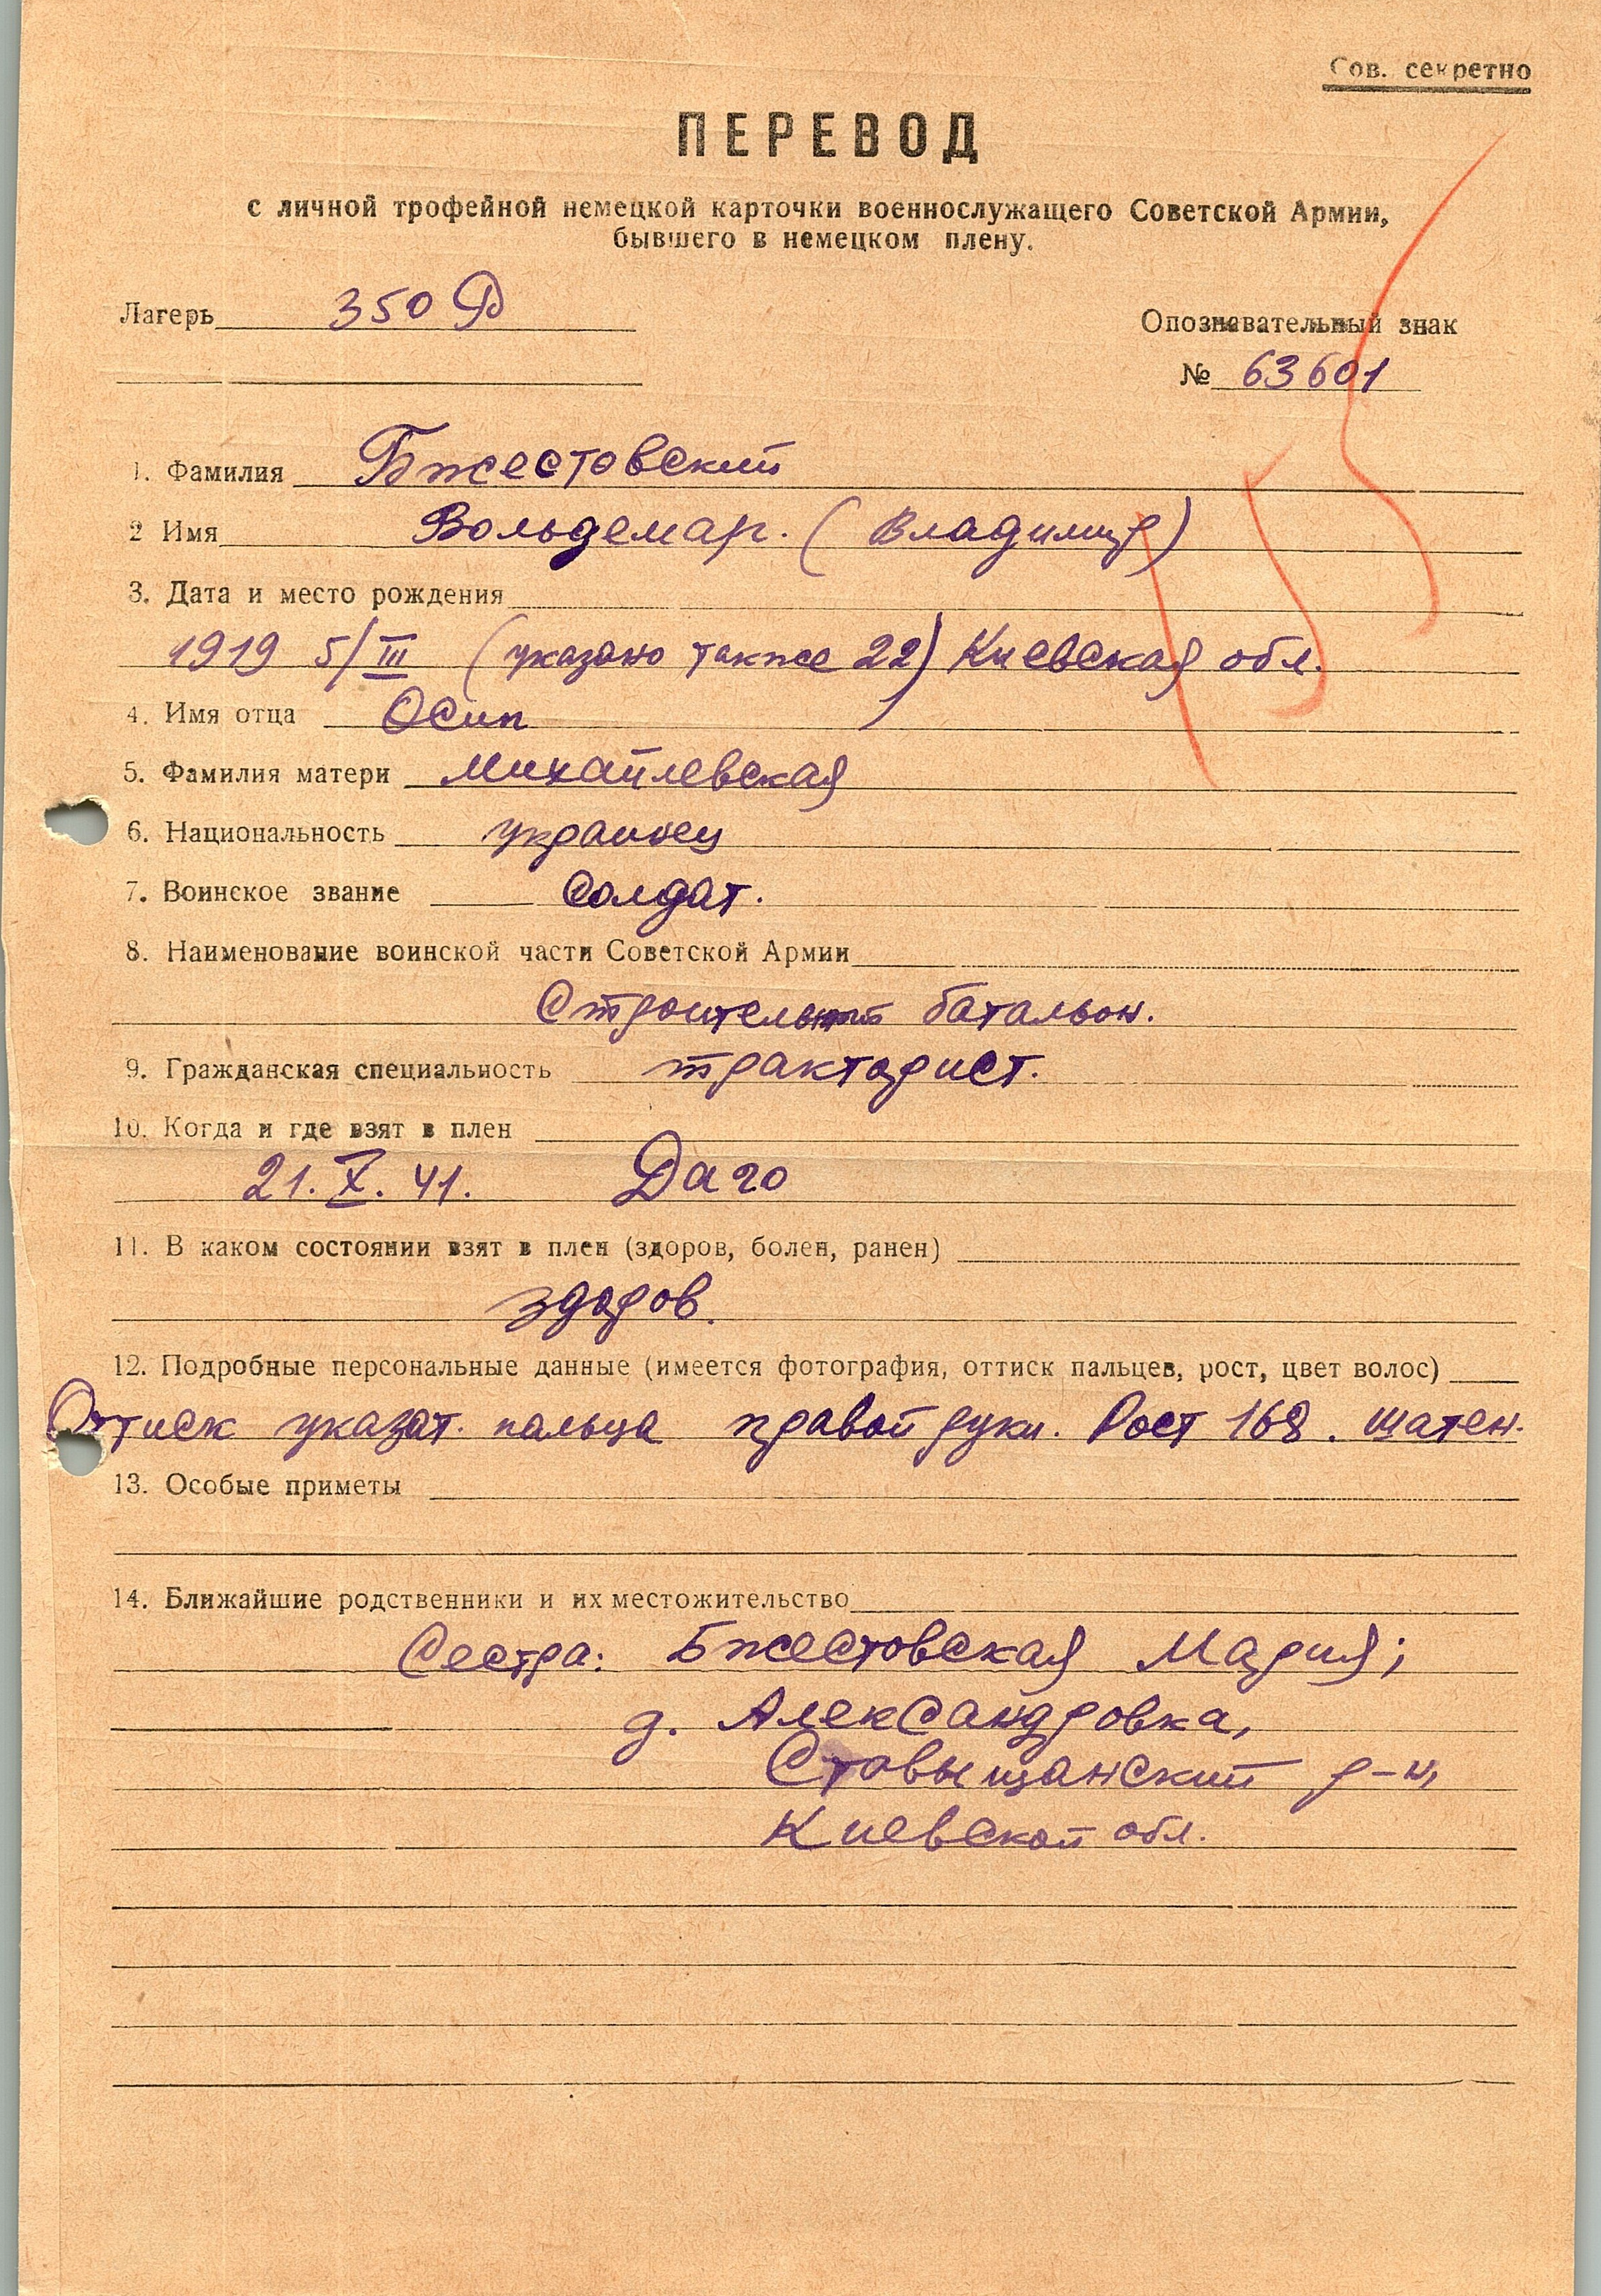 Сов. секретно
ПЕРЕВОД
с личной трофейной немецкой карточки военнослужащего Советской Армии,
бывшего в немецком плену.
Лагерь 350 Ф
Опознавательный знак
№ 63601
1. Фамилия Бжестовский
2 Имя Вольдемар. (Владимир)
3. Дата и место рождения
1919 5/III (указано также 22) Киевская обл.
4. Имя отца Осип
5. Фамилия матери Михайлевская
6. Национальность украинец
7. Воинское звание Солдат.
8. Наименование воинской части Советской Армии
Строительный батальон.
9. Гражданская специальность тракторист.
10. Когда и где взят в плен
21.X.41. Даго
11. В каком состоянии взят в плен (здоров, болен, ранен)
здоров.
12. Подробные персональные данные (имеется фотография, оттиск пальцев, рост, цвет волос)
Оттиск указат. пальца правой руки. Рост 168. шатен.
13. Особые приметы
14. Ближайшие родственники и их местожительство
Сестра: Бжестовская Мария;
д. Александровка,
Ставыщанский р-н,
Киевской обл.